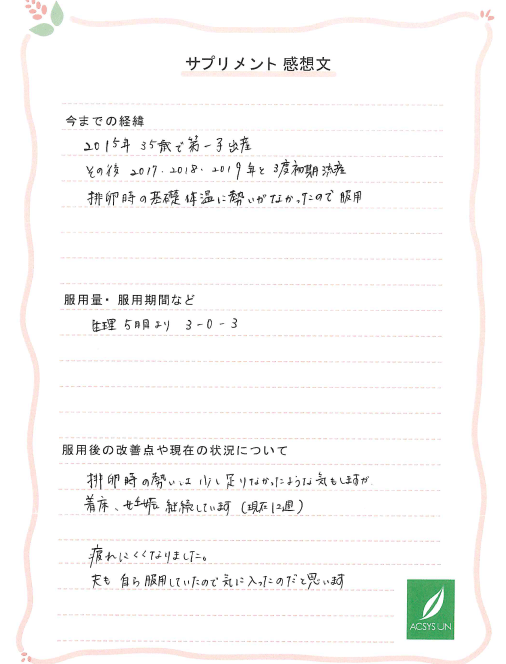 サプリメント 感想文
今までの経緯
2015年 35歳で第一子出産
その後 2017、2018、2019年と 3度初期流産
排卵時の基礎体温に勢いがなかったので服用
服用量・服用期間など
生理5日目より 3-0-3
服用後の改善点や現在の状況について
排卵時の勢いは少し足りなかったような気もしますが、
着床、妊娠継続しています(現在12週)
疲れにくくなりました。
夫も自ら服用していたので気に入ったのだと思います
ACSYSUN